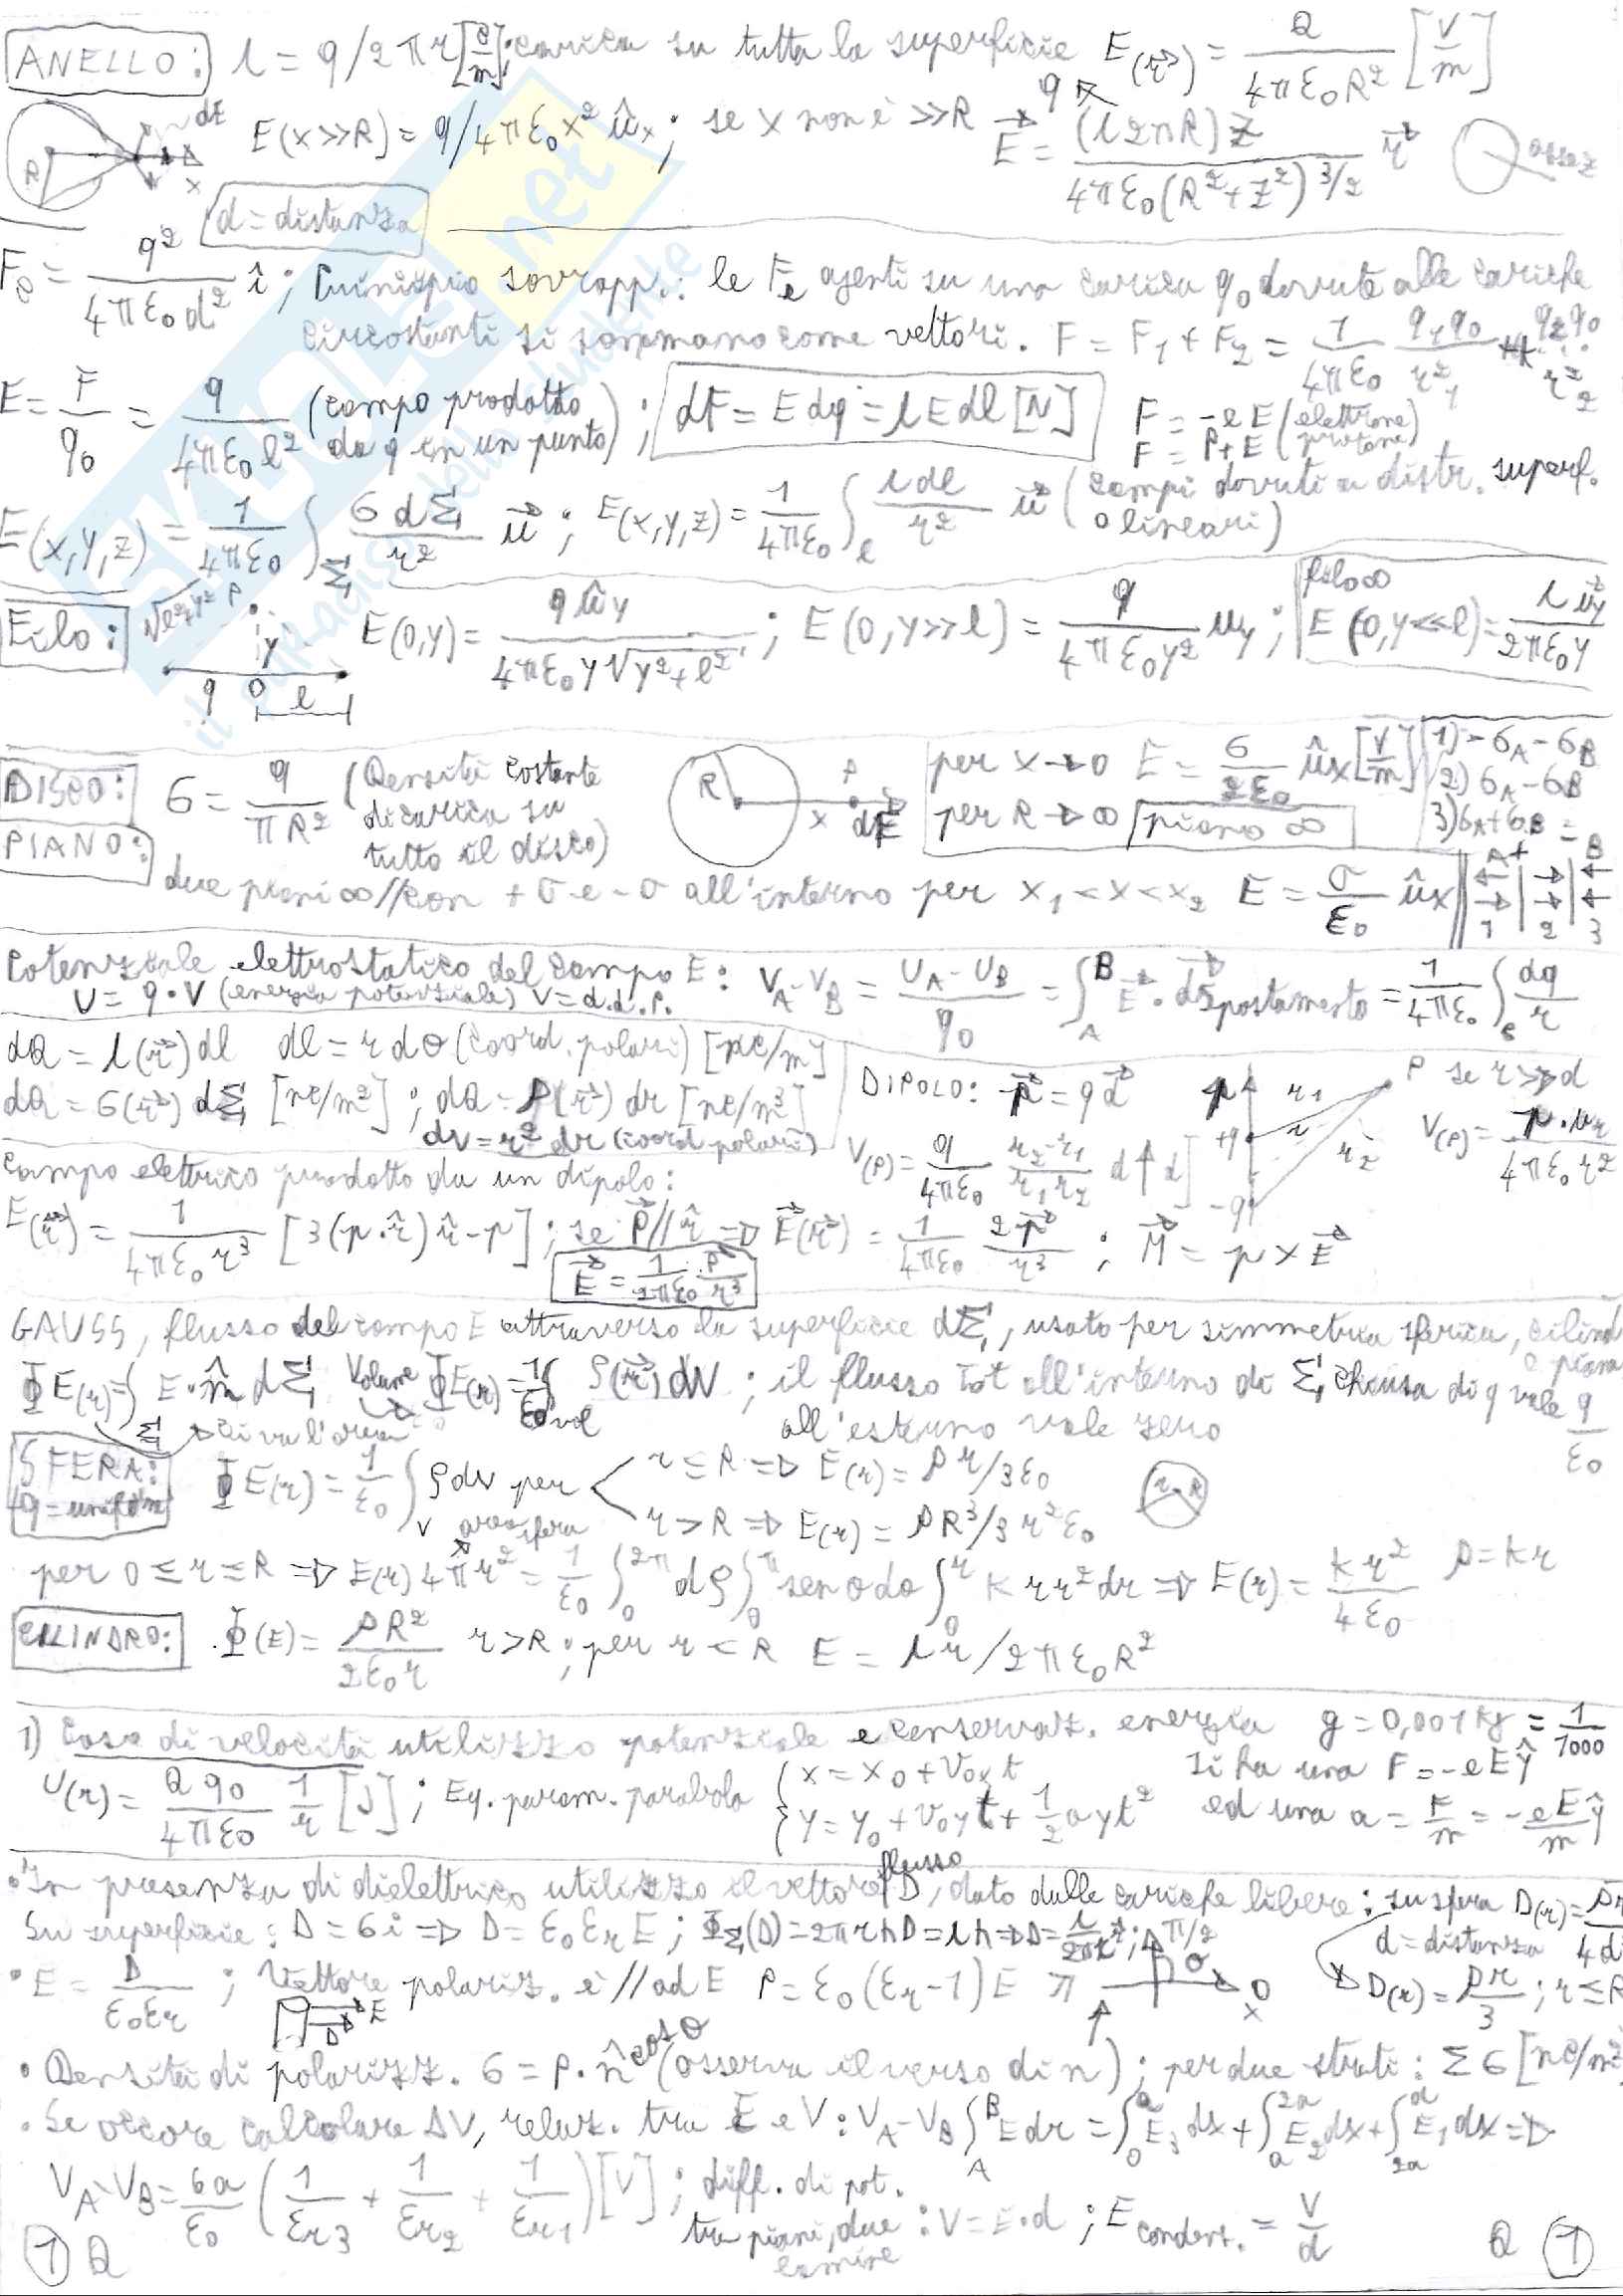 ANELLO: λ = q/2πr [C/m]; carica su tutta la superficie E(r⃗) = Q/4πε₀R² [V/m]
dE
R x
E(x>>R) = q/4πε₀x² û_x; se x non è >>R E⃗ = (λ2πR)z/4πε₀(R²+z²)^3/2 r⃗
q
asse z
d = distanza
Fe = q²/4πε₀d² î; Principio sovrapp.: le Fe agenti su una carica q₀ dovute alle cariche
circostanti si sommano come vettori. F = F₁ + F₂ = 1/4πε₀ q₁q₀/r²₁ + q₂q₀/r²₂
E = F/q₀ = q/4πε₀l² (campo prodotto da q in un punto); dF = E dq = λE dl [N]
F = -e E (elettrone)
F = P+E (protone)
E(x,y,z) = 1/4πε₀ ∫_Σ σ dΣ/r² u⃗; E(x,y,z) = 1/4πε₀ ∫_l λ dl/r² u⃗ (campi dovuti a distr. superf. o lineari)
Filo: √l²+y² P y q O l
E(0,y) = q û_y/4πε₀y√y²+l²; E(0,y>>l) = q/4πε₀y² u_y; filo ∞ E(0,y<<l) = λ u⃗_y/2πε₀y
DISCO: σ = q/πR² (Densità costante di carica su tutto il disco)
R x P dE
per x→0 E = σ/2ε₀ û_x [V/m]
per R→∞ piano ∞
1) -σA - σB
2) σA - σB
3) σA + σB =
PIANO: due piani ∞ // con +σ e -σ all'interno per x₁ < x < x₂ E = σ/ε₀ û_x
A + B
1 2 3
Potenziale elettrostatico del campo E: V_A - V_B = U_A - U_B/q₀ = ∫_A^B E⃗ · ds⃗postamento = 1/4πε₀ ∫_l dq/r
U = q·V (energia potenziale) V = d.d.p.
dQ = λ(r⃗) dl dl = r dθ (coord. polari) [nC/m]
dQ = σ(r⃗) dΣ [nC/m²]; dQ = ρ(r⃗) dr [nC/m³]
dv = r² dr (coord polari)
DIPOLO: p⃗ = q d⃗
p +q -q r₁ r r₂ P se r>>d
V(P) = q/4πε₀ r₂-r₁/r₁r₂ d V(P) = p·u_r/4πε₀r²
Campo elettrico prodotto da un dipolo:
E(r⃗) = 1/4πε₀r³ [3(p·r̂)r̂ - p]; se P⃗ // r̂ ⇒ E⃗(r⃗) = 1/4πε₀ 2p⃗/r³; M⃗ = p × E⃗
E⃗ = 1/2πε₀ p⃗/r³
GAUSS, flusso del campo E attraverso la superficie dΣ, usato per simmetria sferica, cilind
o piana
ΦE(r) = ∫_Σ E·n̂ dΣ Volume ΦE(r) = 1/ε₀ ∫_vol ρ(r⃗) dV; il flusso tot all'interno di Σ chiusa di q vale q/ε₀
ci va l'area all'esterno vale zero
SFERA: q = unifor ΦE(r) = 1/ε₀ ∫_V ρ dv per r ≤ R ⇒ E(r) = ρ r/3ε₀
r > R ⇒ E(r) = ρR³/3r²ε₀
area sfera
r R
per 0 ≤ r ≤ R ⇒ E(r) 4πr² = 1/ε₀ ∫₀^2π dφ ∫₀^π sen θ dθ ∫₀^r k r r² dr ⇒ E(r) = kr²/4ε₀ ρ = kr
CILINDRO: Φ(E) = ρR²/2ε₀r r>R; per r < R E = λr/2πε₀R²
1) Caso di velocità utilizzo potenziale e conservaz. energia g = 0,001 kg = 1/1000
U(r) = Q q₀/4πε₀ 1/r [J]; Eq. param. parabola { x = x₀ + v₀x t
y = y₀ + v₀y t + 1/2 ay t²
si ha una F = -eEŷ
ed una a = F/m = -eE/m ŷ
• In presenza di dielettrico utilizzo il vettore flusso D, dato dalle cariche libere: su sfera D(r) =
Su superficie: D = σi ⇒ D = ε₀εrE; Φ_Σ(D) = 2πrhD = λh ⇒ D = λ/2πr; π/2 d = distanza
• E = D/ε₀εr; Vettore polarizz. è // ad E P = ε₀(εr - 1)E π θ 0 x D(r) = ρr/3; r ≤ R
D E
• Densità di polarizz. σ = P·n̂ cosθ (osserva il verso di n); per due strati: Σσ [nC/m²
• Se occore calcolare ΔV, relaz. tra E e V: V_A - V_B ∫_A^B E dr = ∫₀^a E₃ dx + ∫_a^2a E₂ dx + ∫_2a^d E₁ dx ⇒
V_A - V_B = σa/ε₀ (1/εr₃ + 1/εr₂ + 1/εr₁) [V]; diff. di pot. tra piani, due : V = E·d; E condens. = V/d
1 Q Q 1
SKUOLA.net
il paradiso dello studente